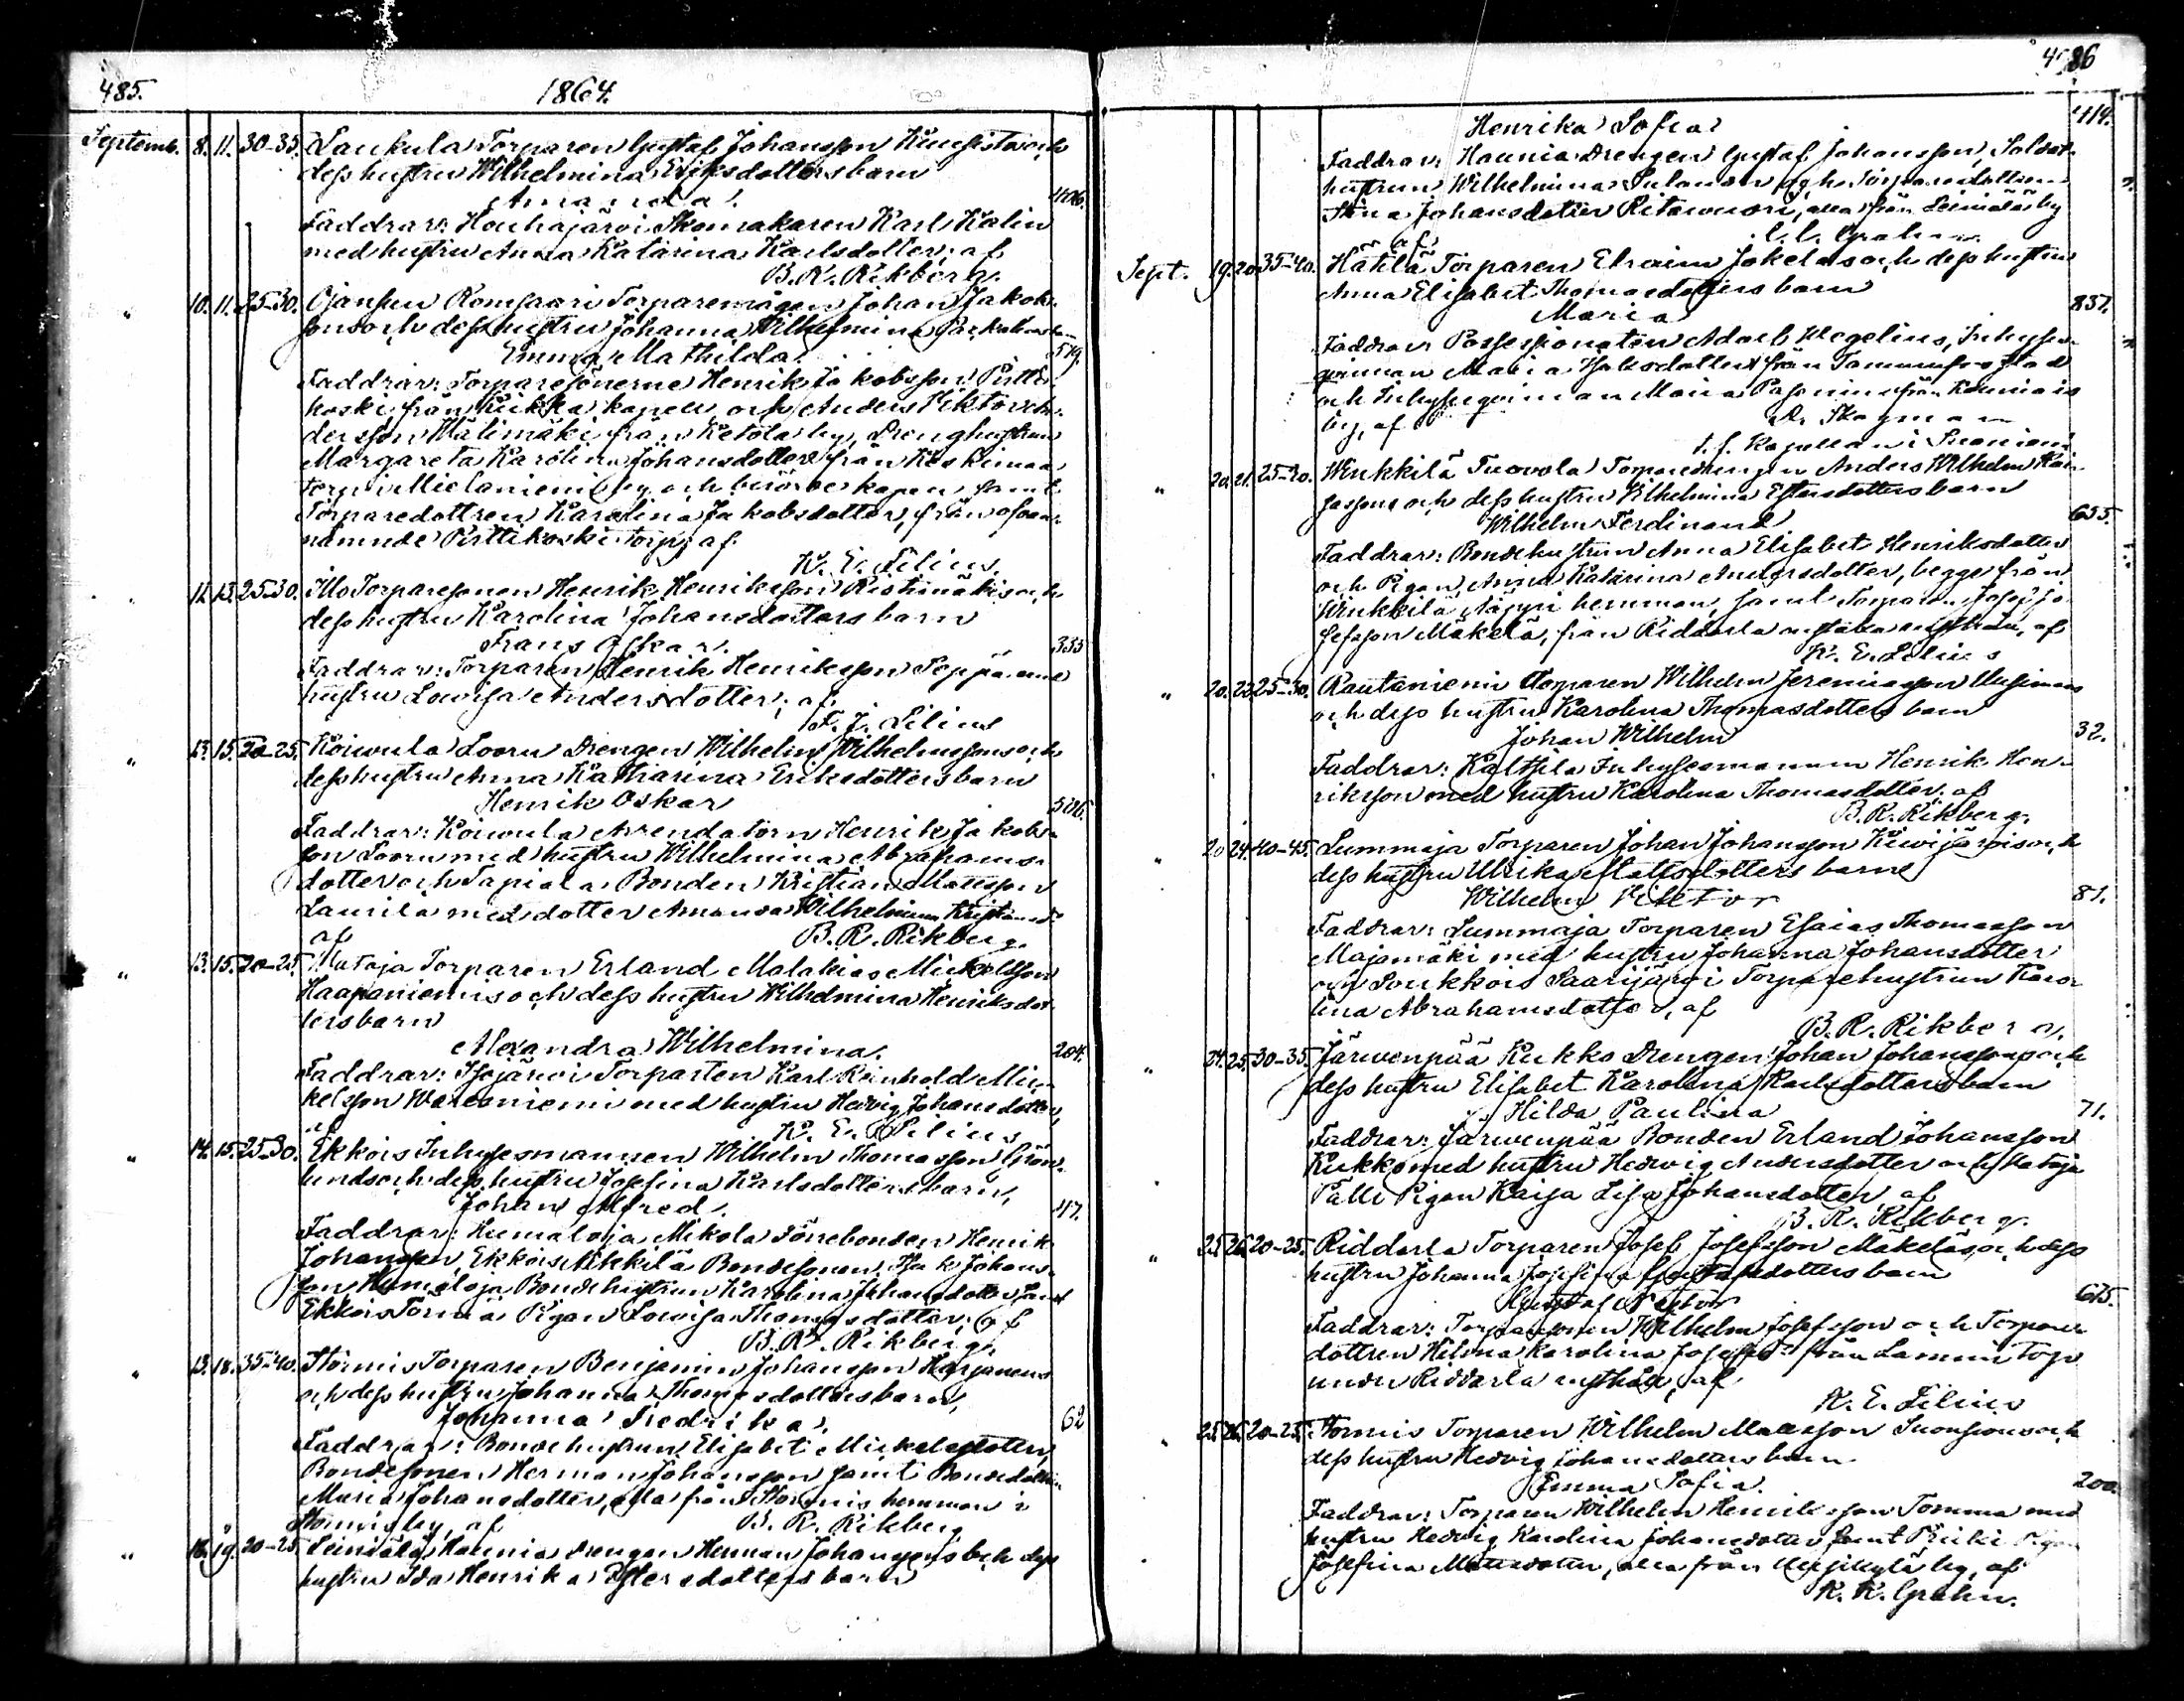 485.
1864.
Septemb. 8. 11. 30-35. Laukula Torparen Gustaf Johansson och
dess hustru Wilhelmina Eriksdotters barn
Amanda.
Faddrar: Houhajärvi Skomakaren Karl Kalin
med hustru Anna Katarina Karlsdotter, af
B. R. Rikberg.
" 10. 11. 25-30. Ojansuu Torparemågen Johan Jakobs-
sons och dess hustru Johanna Wilhelmina
Emma Mathilda. 519.
Faddrar: Torparesönerne Henrik Jakobsson Pirtti-
koski från Kiikka kapell och Anders Viktor An-
dersson Wälimäki från Ketola by, Drenghustrun
Margareta Karolina Johansdotter från
torp i Mielaniemi by och kapell samt
Torparedottren Karolina Jakobsdotter, från ofvan-
nämnde Pirttikoski torp; af
K. E. Lilius.
11. 13. 25-30. Illo Torparesonen Henrik Henriksson Ristimäkis och
dess hustru Karolina Johansdotters barn
Frans Oskar. 335
Faddrar: Torparen Henrik Henriksson Seppä med
hustru Lowisa Andersdotter; af
F. J. Lilius
" 13. 15. 20-25. Koiwula Looru Drengen Wilhelm Wilhelmssons och
dess hustru Anna Katharina Eriksdotters barn
Henrik Oskar
Faddrar: Koiwula Arrendatorn Henrik Jakobs-
son Looru med hustru Wilhelmina Abrahams-
dotter och Tapiala Bonden Kristian Mattsson
Laurila med dotter Amanda Wilhelmina
af B. R. Rikberg.
" 13. 15. 20-25. Mataja Torparen Erland Malakias Mickelsson
Haapaniemis och dess hustru Wilhelmina Henriksdot-
ters barn
Alexandra Wilhelmina. 204.
Faddrar: Isojärvi Torparen Karl Reinhold Mic-
kelsson med hustru Hedvig Johansdotter,
af K. E. Lilius
" 14. 15. 25-30. Ekkois Inhysesmannen Wilhelm Thomasson Grön-
lunds och dess hustru Josefina Karlsdotters barn,
Johan Alfred. 117.
Faddrar: Humaloja Mikola Bonden Henrik
Johansson, Ekkois Mikkilä Bondesonen Isak Johans-
son Humaloja Bondehustrun Karolina Johansdotter samt
Ekkois Pigan Lowisa Thomasdotter; af
B. R. Rikberg.
" 13. 18. 35-40. Stormis Torparen Benjamin Johansson Harjanens
och dess hustru Johanna Thomasdotters barn,
Johanna Fredrika. 62
Faddrar: Bondehustrun Elisabet Mickelsdotter,
Bondesonen Herman Johansson samt Bondedottren
Maria Johansdotter, alla från Stormis hemman i
Stormis by, af B. R. Rikberg
" 16. 19. 20-25. Leiniälä Haunia Drengen Herman Johanssons och dess
hustru Ida Henrika Estersdotters barn
486
Henrika Sofia 114.
Faddrar: Haunia Drengen Gustaf Johansson, Soldat-
hustrun Wilhelmina och Torparedottren
Stina Johansdotter Ritawuori, alla från Leiniälä by
af Grahn.
Sept. 19. 20. 35-40. Hätilä Torparen Efraim Jokelas och dess hustru
Anna Elisabet Thomasdotters barn
Maria 857.
Faddrar: Possessionaten Adolf Hegelius, Inhyses-
qvinnan Maria Isaksdotter från Tammerfors stad
och Inhysesqvinnan Maria Pasanin från
by, af Skogman
t. f. Kapellan i Suoniemi
" 20. 21. 25-30. Winkkilä Tuovola Torparedrengen Anders Wilhelm
och dess hustru Wilhelmina Estersdotters barn
Wilhelm Ferdinand 655.
Faddrar: Bondehustrun Anna Elisabet Henriksdotter
och Pigan Anna Katarina Andersdotter, begge från
Winkkilä Näppi hemman, samt Torparen Josef Jo-
sefsson Mäkelä, från Riddarla rusthåll, af
K. E. Lilius
" 20. 22. 25-30. Rautaniemi Torparen Wilhelm Jeremiasson
och dess hustru Karolina Thomasdotters barn
Johan Wilhelm 32.
Faddrar: Kaltsila Inhysesmannen Henrik Hen-
riksson med hustru Karolina Thomasdotter, af
B. R. Rikberg.
" 20 24. 40-45. Lummaja Torparen Johan Johansson Kiwijärvis och
dess hustru Ulrika Mattsdotters barn
Wilhelm Viktor 81.
Faddrar: Lummaja Torparen Esaias Thomasson
Majamäki med hustru Johanna Johansdotter
och Soukkois Saarijärvi Torparehustrun Karo-
lina Abrahamsdotter, af
B. R. Rikberg.
" 24. 25. 30-35. Järwenpää Kukko Drengen Johan Johanssons och
dess hustru Elisabet Karolina Karlsdotters barn
Hilda Paulina 71.
Faddrar: Järwenpää Bonden Erland Johansson
Kukko med hustru Hedvig Andersdotter och Mataja
Palli Pigan Kaisa Lisa Johansdotter, af
B. R. Rikberg.
" 25. 26. 20-25. Riddarla Torparen Josef Josefsson Mäkeläs och dess
hustru Johanna Josefina Gustafsdotters barn
Gustaf Nestor 675.
Faddrar: Torparesonen Wilhelm Josefsson och Torpare-
dottren Hilma Karolina Josefsd. från Lammi torp
under Riddarla rusthåll, af
K. E. Lilius
" 25. 26. 20-25. Stormis Torparen Wilhelm Mattsson och
dess hustru Hedvig Johansdotters barn
Emma Sofia. 200.
Faddrar: Torparen Wilhelm Henriksson Tomma med
hustru Hedvig Karolina Johansdotter samt Pigan
Josefina Mattsdotter, alla från by, af
K. K. Grahn.